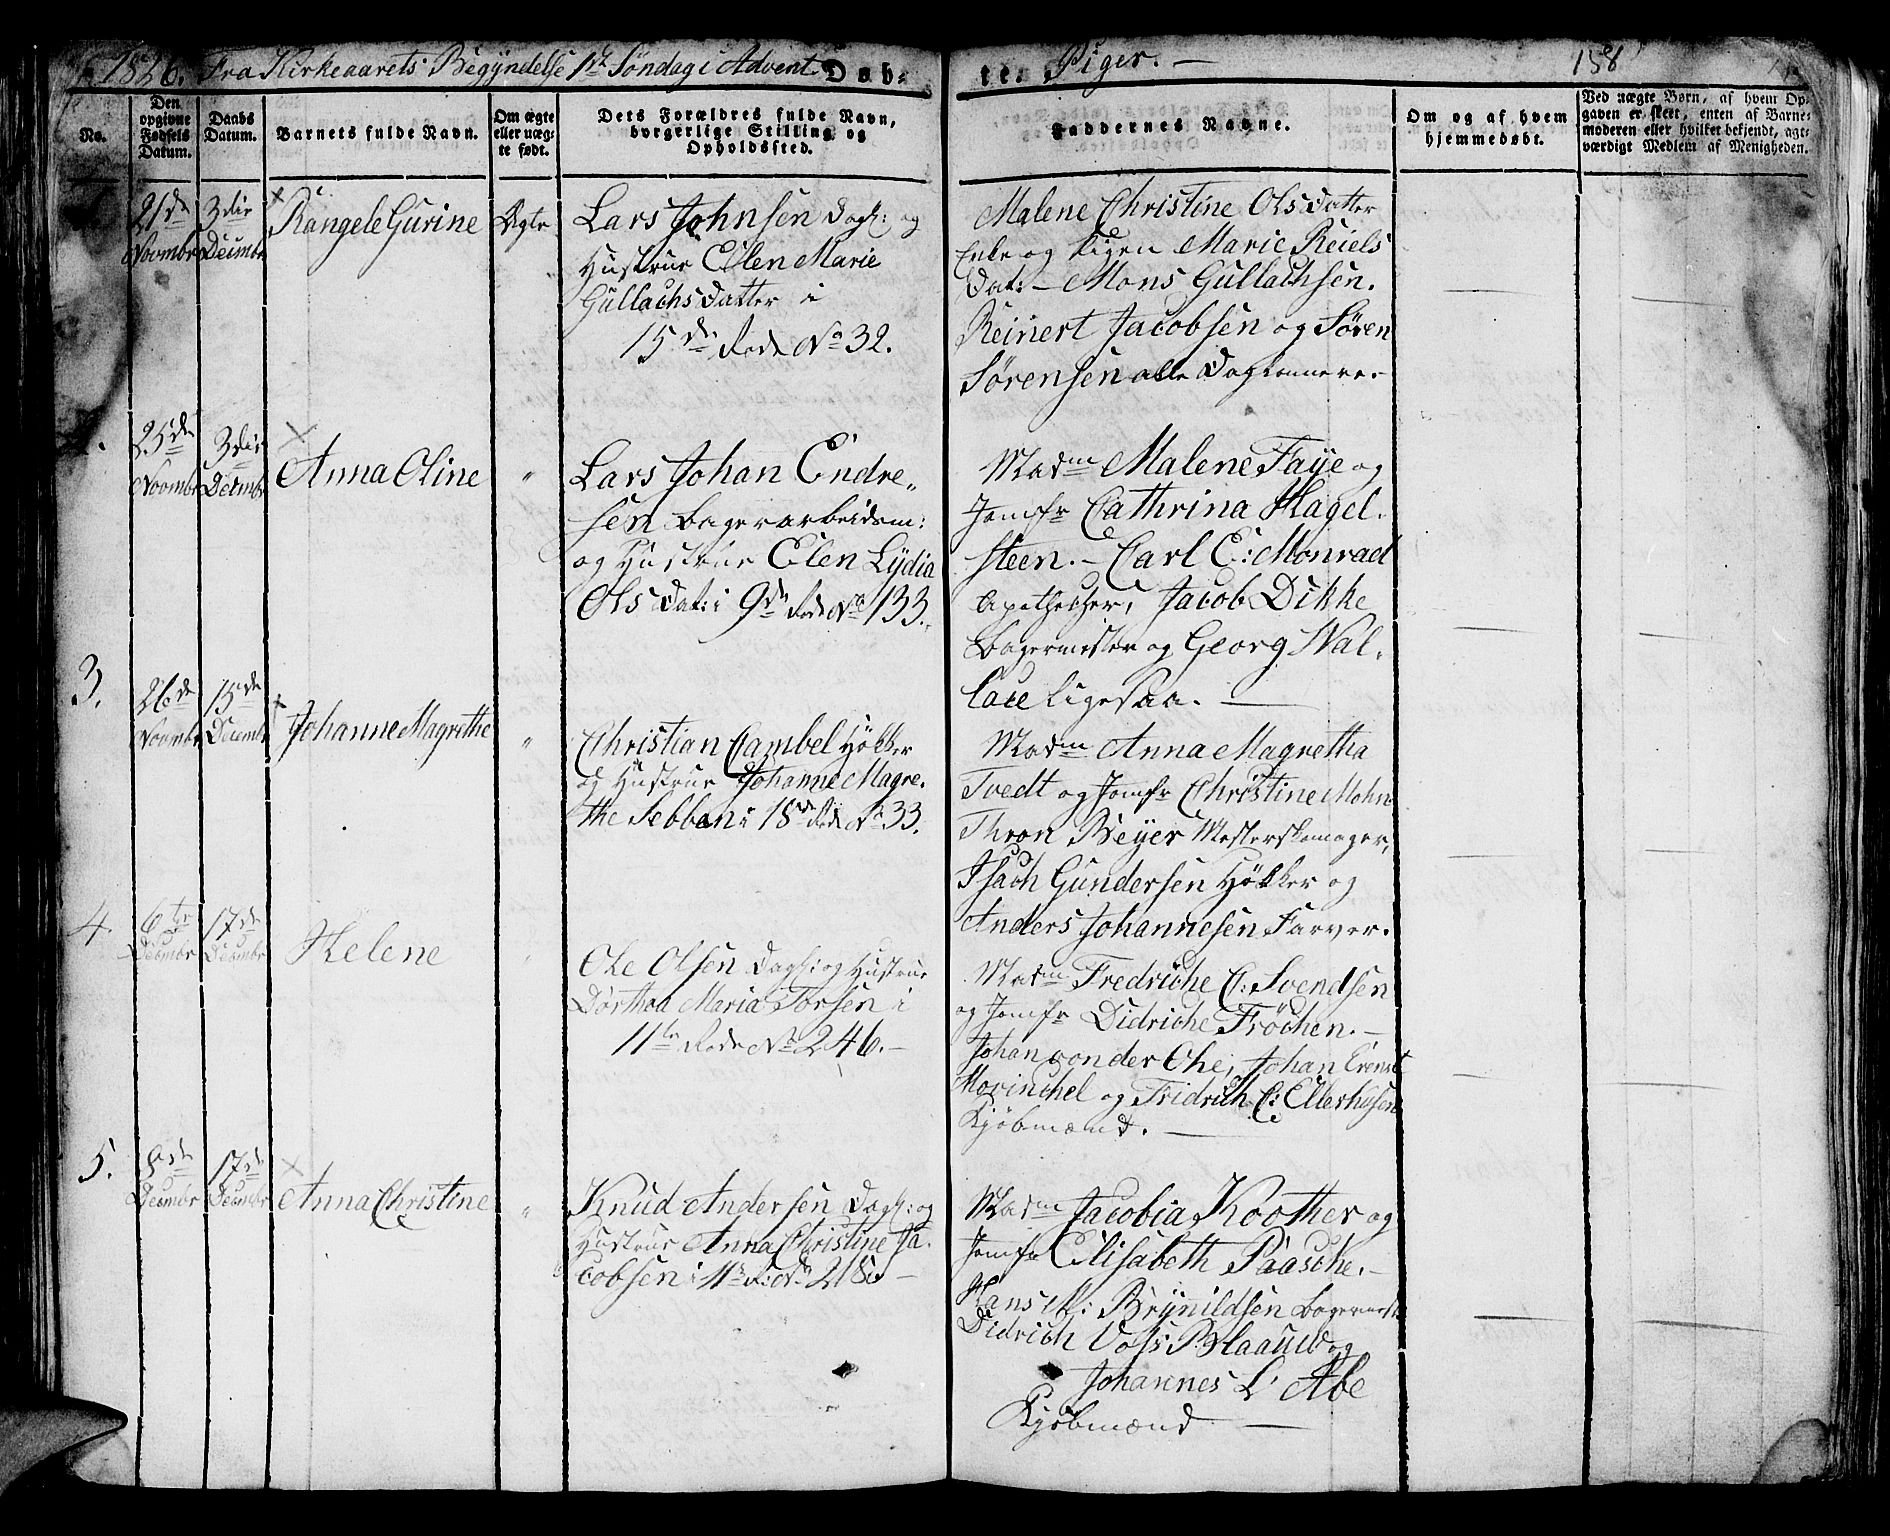 1826. Fra Kirkeaarets Begyndelse 1st Søndag i Advent. Døb-
te. Piger. —
158
No.
Den opgivne Fødsels Datum.
Daabs Datum.
Barnets fulde Navn.
Om ægte eller uægte født.
Dets Forældres fulde Navn, borgerlige Stilling og Opholdssted.
Faddernes Navne.
Om og af hvem hjemmedøbt.
Ved uægte Børn, af hvem Opgaven er skeet, enten af Barnemoderen eller hvilket bekjendt, agtværdigt Medlem af Menigheden.
21de Novmbr
3die Decmbr
Rangele Gurine
Ægte
Lars Johnsen Dagl: og
Hustrue Elen Marie
Gullachsdatter i
15de Rode No 32.
Malene Christine Olsdatter
Enke og Pigen Marie Reiels
Dat: — Mons Gullachsen.
Reinert Jacobsen og Sören
Sörensen alle Daglønnere.
25de Novmbr
3die Decmbr
Anna Oline
"
Lars Johan Endre„
sen Bagerarbeidsm:
og Hustrue Elen Lÿdia
Ols Dat: i 9de Rode No 133.
Madm Malene Faÿe og
Jomfr Cathrina Hagel.
steen. — Carl C: Monrad
Apothecher, Jacob Dikke
Bagermester og Georg Wal.
lace ligesaa. —
3.
26de Novmbr
15de Decmbr
Johanne Magrethe
"
Christian Cambel Høkker
og Hustrue Johanne Magre.
the Sebben i 18de Rode No 33.
Madm Anna Magretha
Tvedt og Jomfr Christine Mohn
Thron Beÿer Mesterskomager,
Isach Gundersen Høkker og
Anders Johannesen Farver.
4.
6te Decmbr
17de Decmbr
Helene
"
Ole Olsen Dagl: og Hustrue
Dorthea Maria Torsen i
11te Rode No 246. —
Madm Fredriche C: Svendsen
og Jomfr Didriche Fröchen. —
Johan von der Ohe, Johan Ernst
Morinchel og Fridrich C: Ellerhusen
Kjøbmænd. —
5.
8de Decmbr
17de Decmbr
Anna Christine
"
Knud Andersen Dagl: og
Hustrue Anna Christine Ja.
cobsen i 11te R: No 218. —
Madm Jacobia Koother og
Jomfr Elisabeth Paasche. —
Hans M: Brÿnildsen Bagermest
Didrich Voss Blaauw og
Johannes L' Abe
Kjøbmænd —